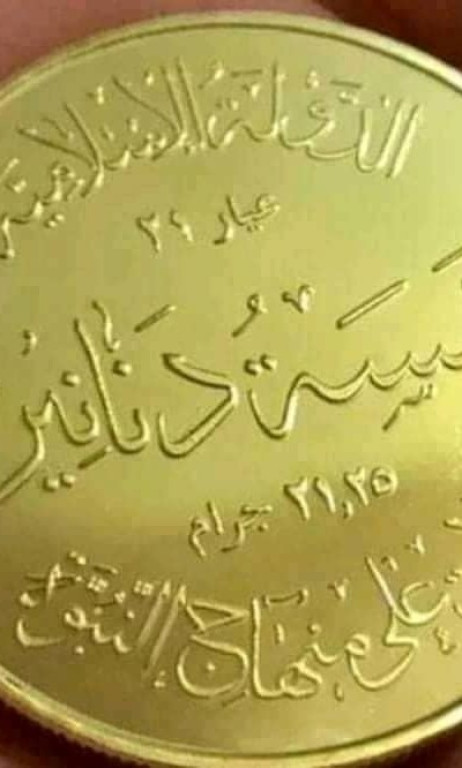 الدَّوْلَةُ الإِسْلَامِيَّة
عيار ٢١
سَةُ دَنَانِيرَ
٢١,٢٥ جرام
عَلَى مِنْهَاجِ النُّبُوَّةِ